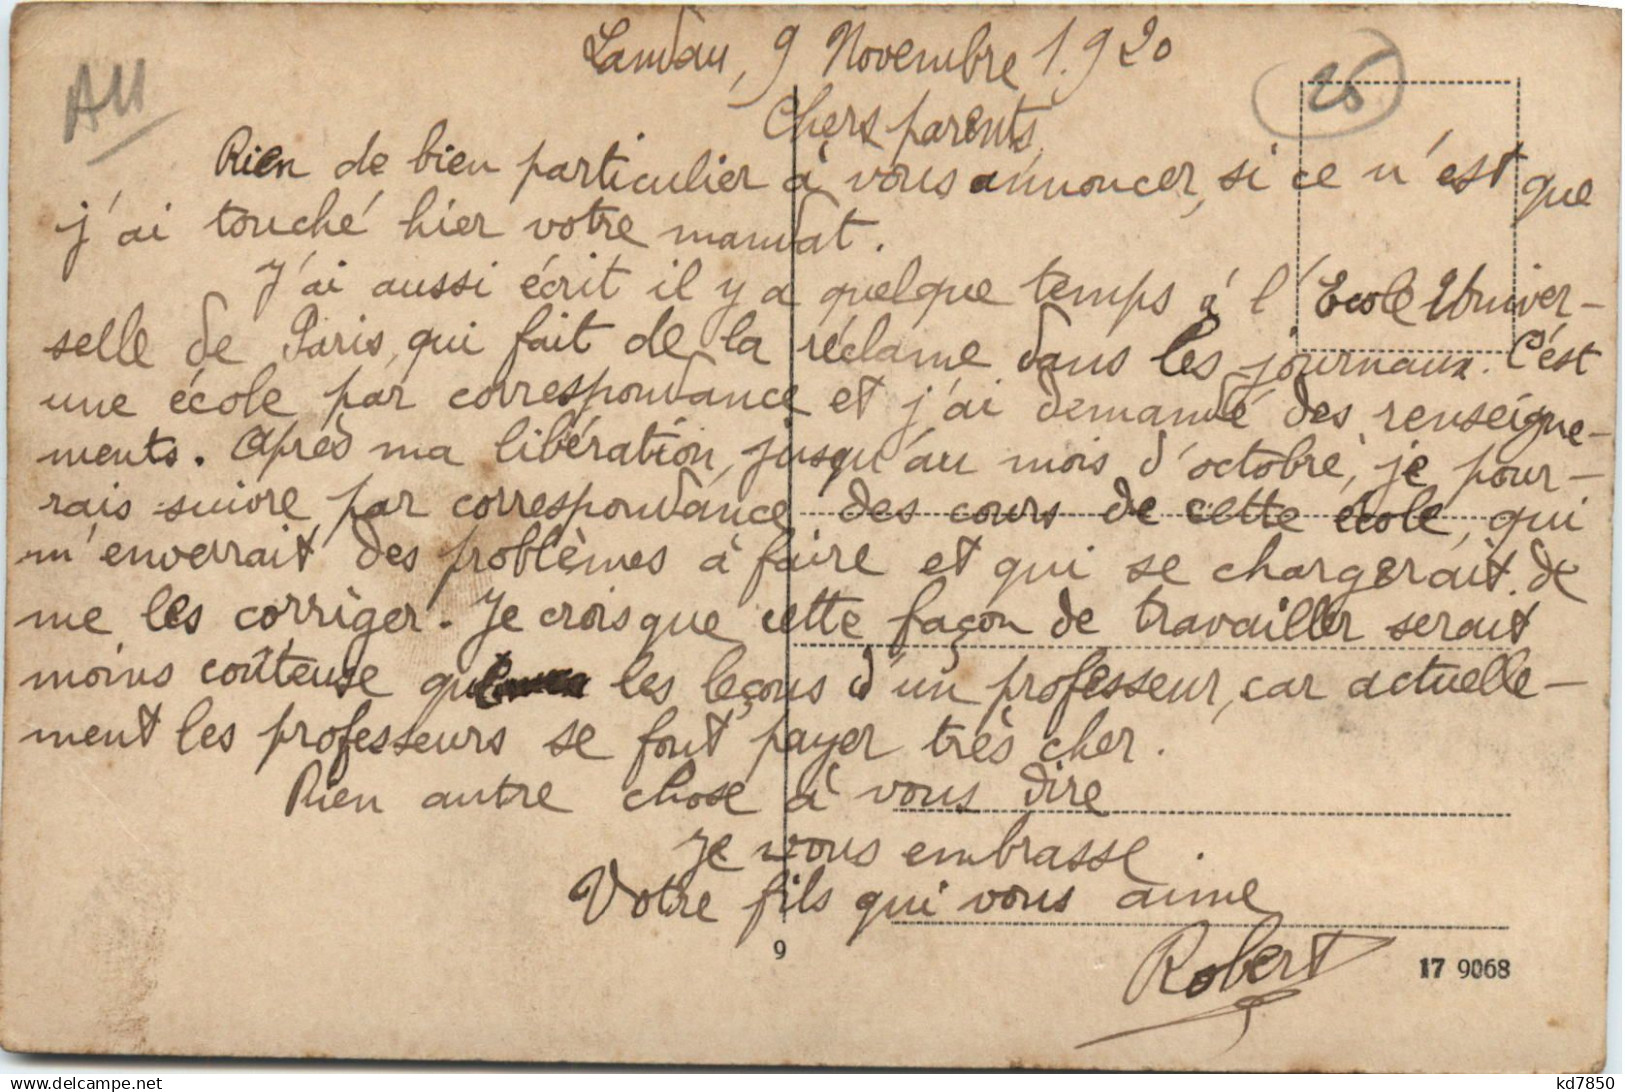 Landau, 9 Novembre 1.920
All
25
Chers parents,
Rien de bien particulier à vous annoncer, si ce n'est que
j'ai touché hier votre mandat.
J'ai aussi écrit il y a quelque temps à l'Ecole Univer-
selle de Paris, qui fait de la réclame dans les journaux. C'est
une école par correspondance et j'ai demandé des renseigne-
ments. Après ma libération, jusqu'au mois d'octobre, je pour-
rais suivre par correspondance des cours de cette école, qui
m'enverrait des problèmes à faire et qui se chargerait de
me les corriger. Je crois que cette façon de travailler serait
moins coûteuse que les leçons d'un professeur, car actuelle-
ment les professeurs se font payer très cher.
Rien autre chose à vous dire
Je vous embrasse.
Votre fils qui vous aime
Robert
9
17 9068
kd7850